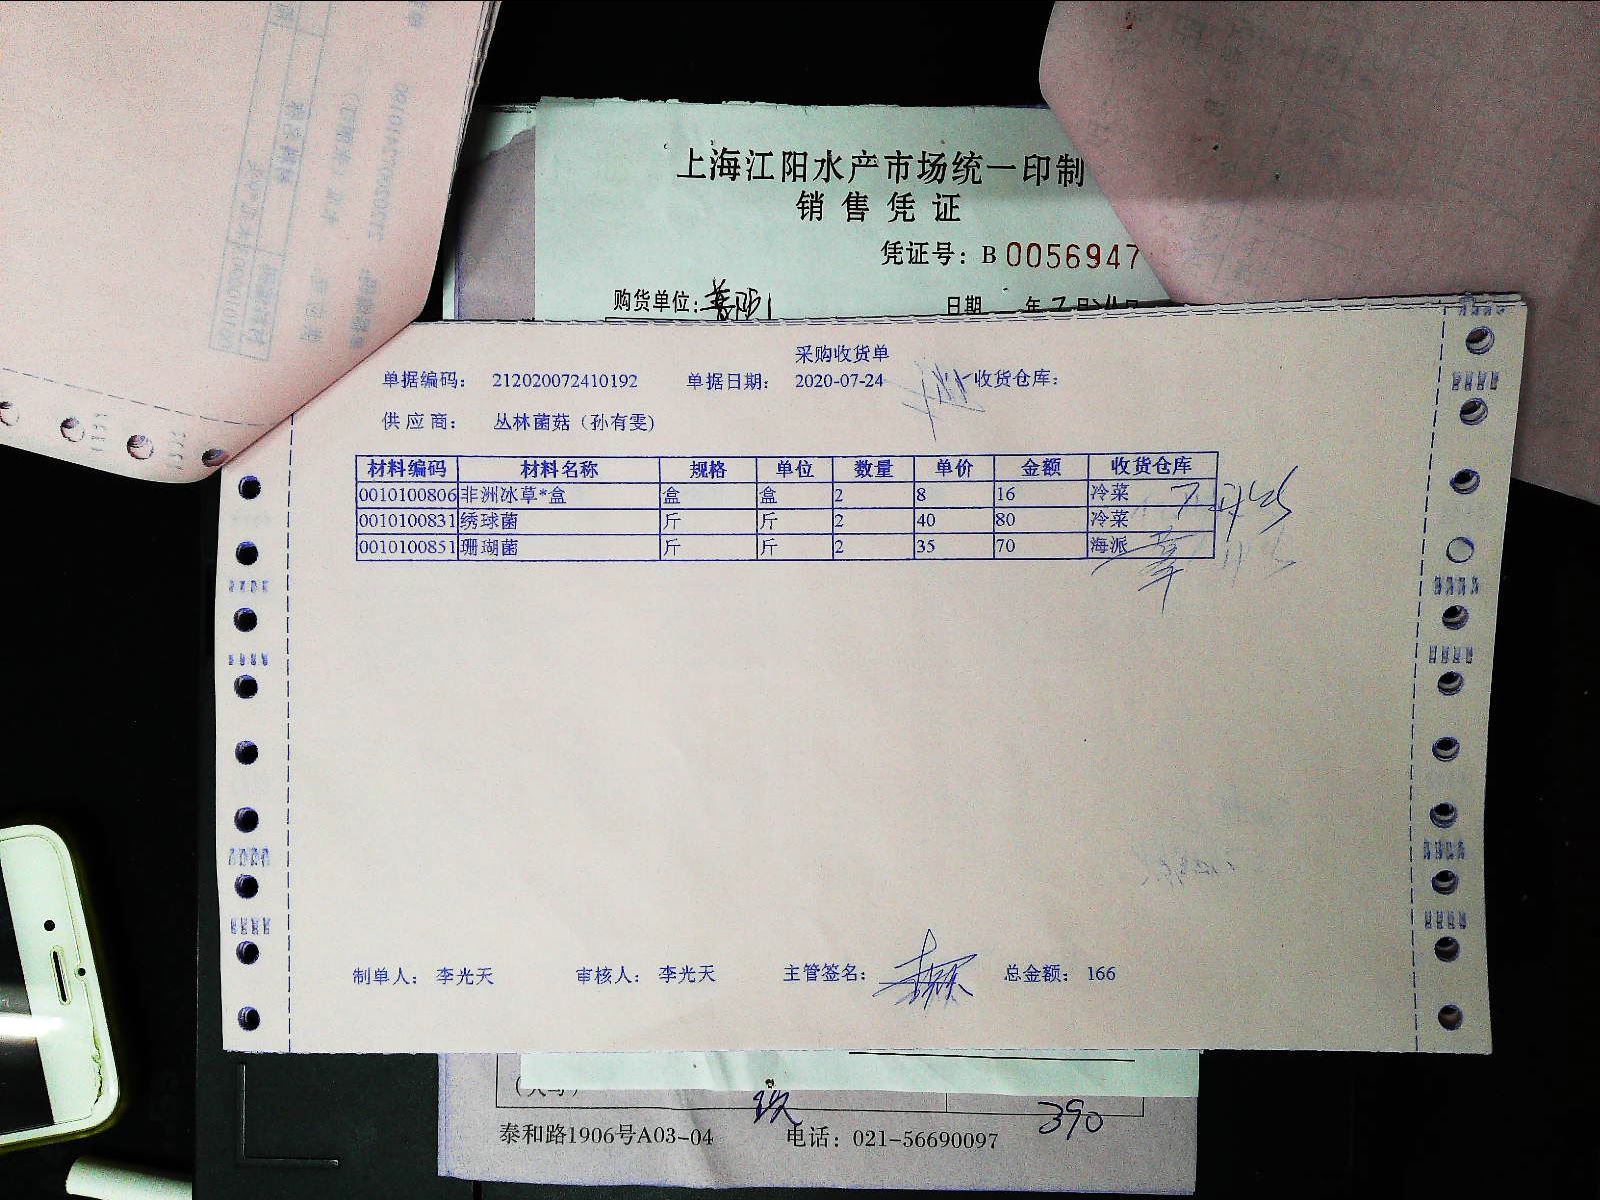 上海江阳水产市场统一印制
销售凭证
凭证号：B 0056947
购货单位：
日期 年 7 月
采购收货单
单据编码： 212020072410192 单据日期： 2020-07-24 收货仓库：
供应商： 丛林菌菇（孙有雯）
材料编码 材料名称 规格 单位 数量 单价 金额 收货仓库
0010100806 非洲冰草*盒 盒 盒 2 8 16 冷菜
0010100831 绣球菌 斤 斤 2 40 80 冷菜
0010100851 珊瑚菌 斤 斤 2 35 70 海派
制单人： 李光天 审核人： 李光天 主管签名： 总金额： 166
390
泰和路1906号A03-04 电话：021-56690097